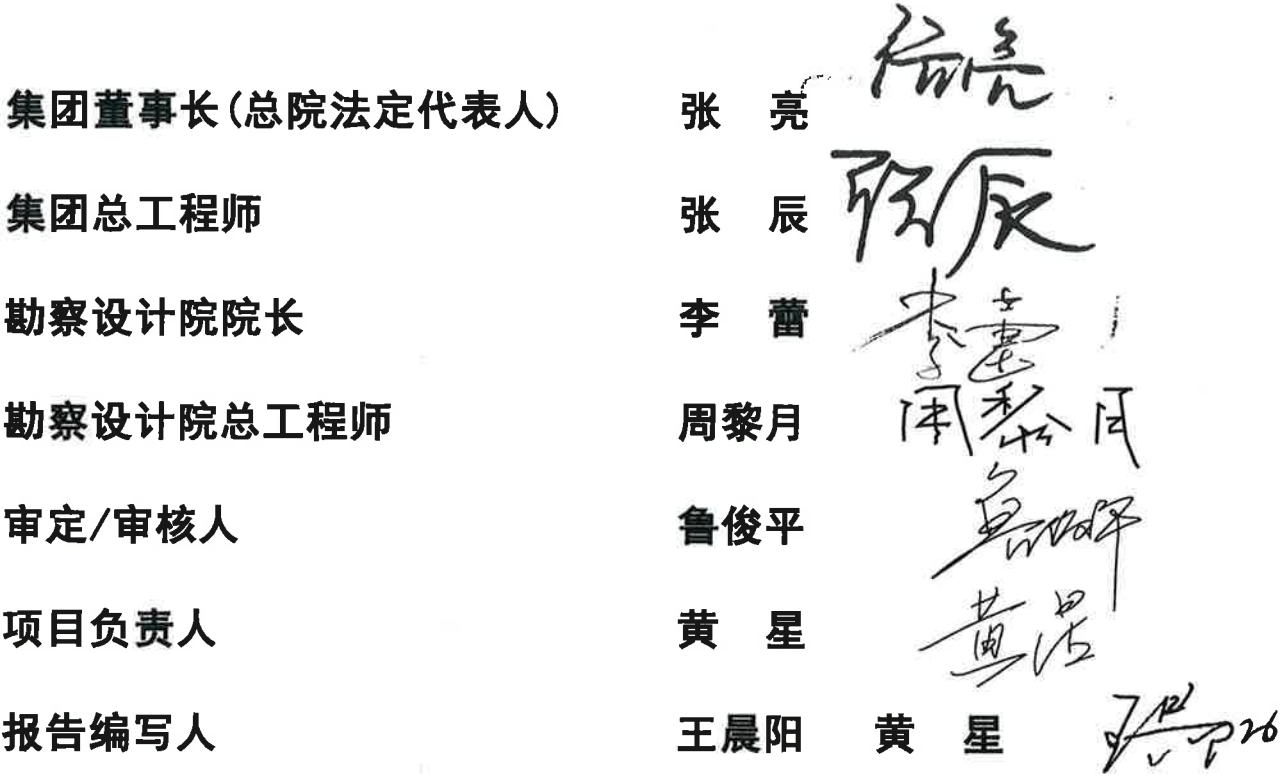 集团董事长(总院法定代表人) 张 亮
集团总工程师 张 辰 张辰
勘察设计院院长 李 蕾 李蕾
勘察设计院总工程师 周黎月 周黎月
审定/审核人 鲁俊平
项目负责人 黄 星 黄星
报告编写人 王晨阳 黄 星